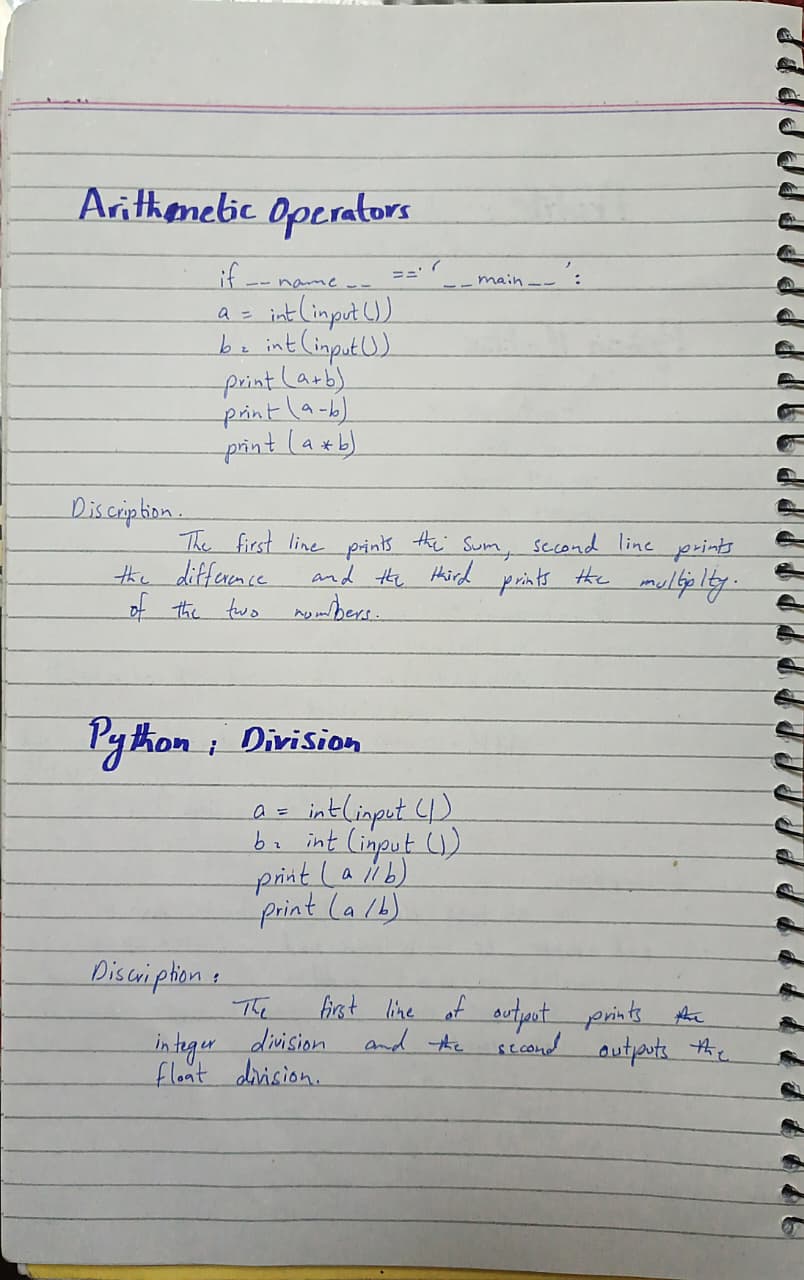 Arithmetic Operators
if __name__ == '__main__':
a = int(input())
b = int(input())
print(a+b)
print(a-b)
print(a*b)
Discription.
The first line prints the sum, second line prints
the difference and the third prints the multiplty.
of the two numbers.
Python : Division
a = int(input())
b = int(input())
print(a//b)
print(a/b)
Discription :
The first line of output prints the
integer division and the second outputs the
float division.